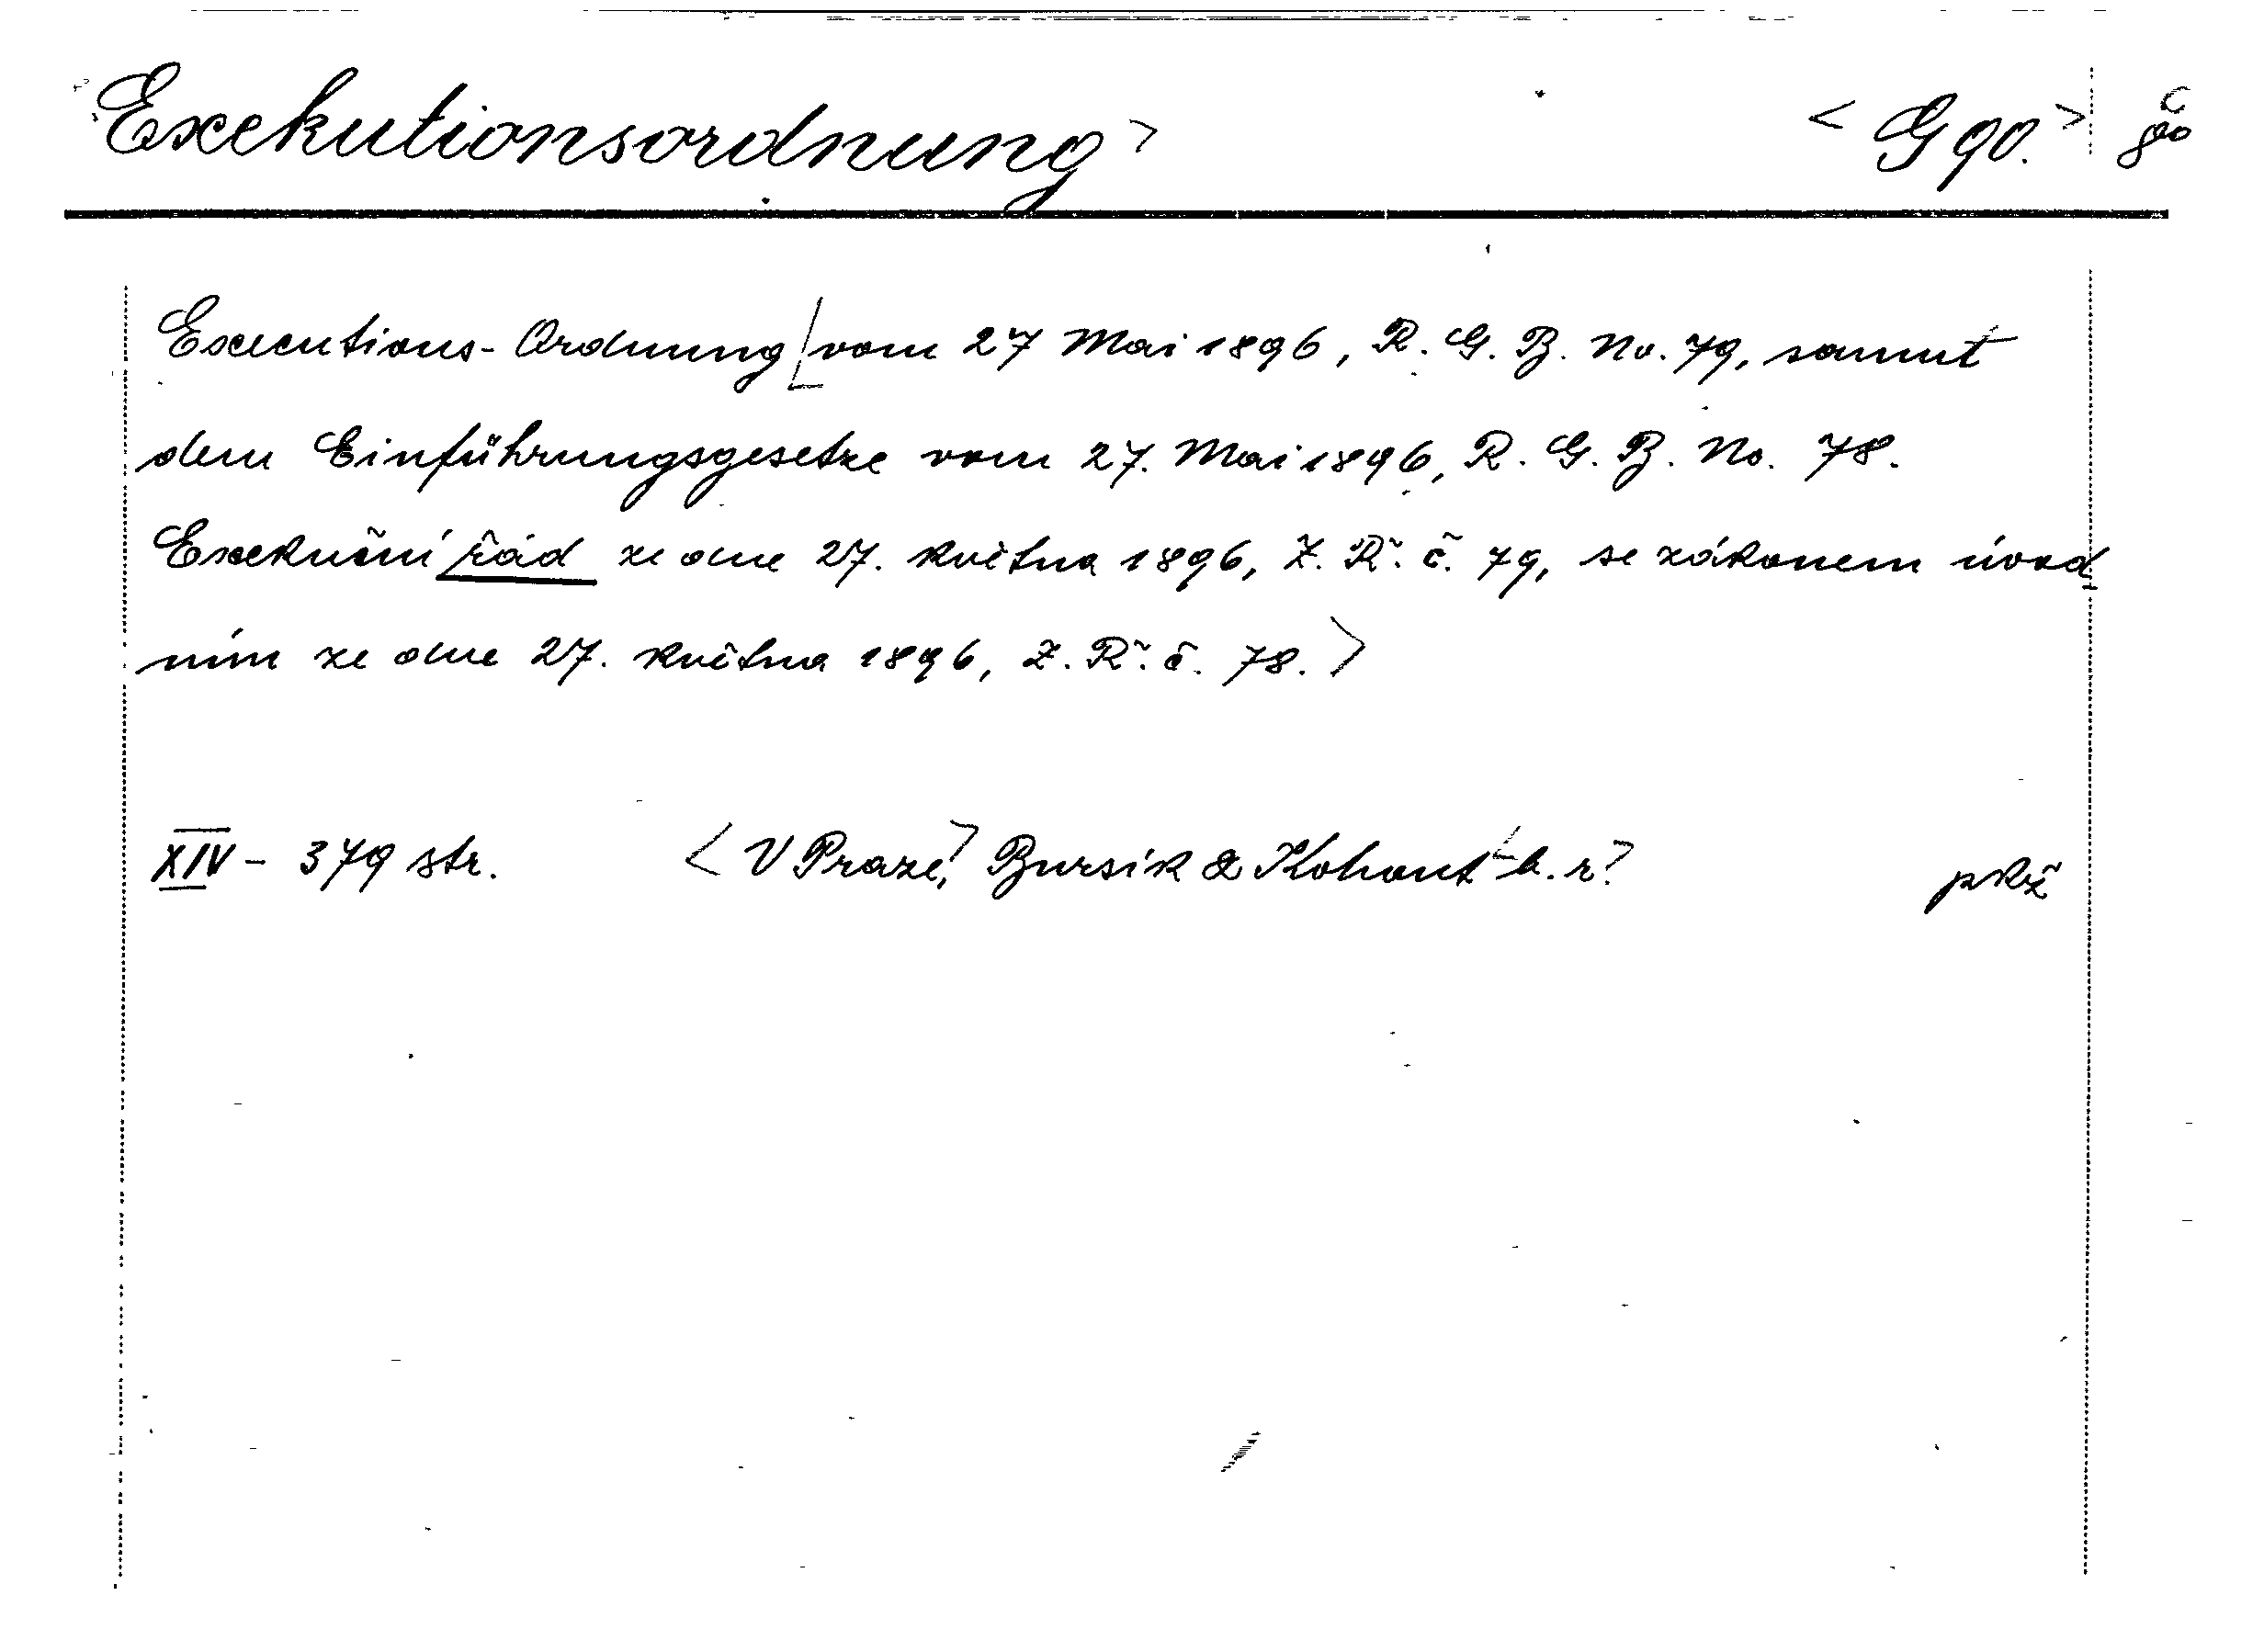 Exekutionsordnung> <G 90.>
Executions-Ordnung [vom 27 Mai 1896, R. G. B. No. 79, sammt
dem Einführungsgesetze vom 27. Mai 1896, R. G. B. No. 78.
Exekuční řád ze dne 27. května 1896, Z. Ř. č. 79, se zákonem úvod
ním ze dne 27. května 1896, Z. Ř. č. 78.>
XIV - 379 str. <V Praze,> Bursík & Kohout <b. r.> pkž